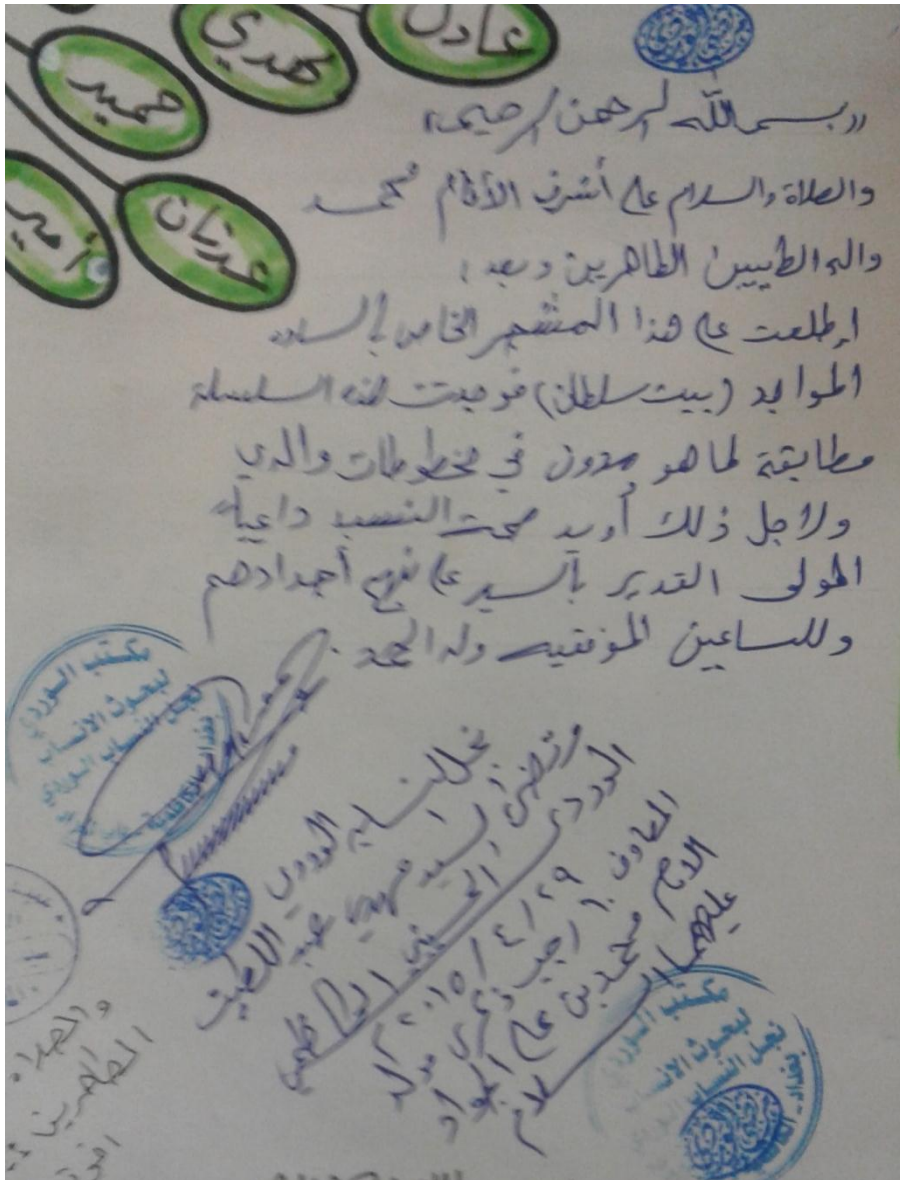 عادل
مهدي
حميد
عدنان
أمير
((بسم الله الرحمن الرحيم))
والصلاة والسلام على أشرف الأنام محمد
واله الطيبين الطاهرين وبعد،
إطلعت على هذا المشجر الخاص بالساده
الموابد (بيت سلطان) فوجدت هذه السلسلة
مطابقة لما هو مدون في مخطوطات والدي
ولاجل ذلك أويد صحت النسب داعياً
المولى القدير بالسير على نهج أجدادهم
وللساعين الموفقيه وله الحمد.
مكتب الوردي
لبحوث الانساب
نجل النسابه الوردي
مرتضى السيد مهدي عبد اللطيف
الوردي الحسيني الكاظمي
٢٠١٥/٤/٢٩
المصادف ١٠ رجب ذكرى مولد
الامام محمد بن علي الجواد
عليهما السلام
مكتب الوردي
لبحوث الانساب